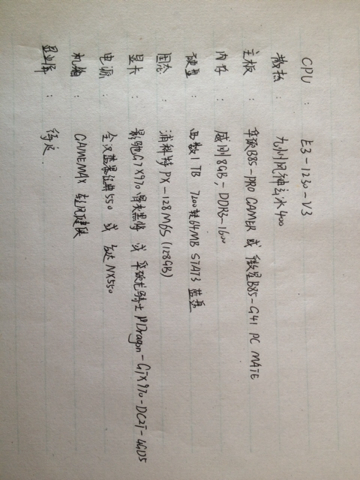 CPU : E3-1230-V3
散热 : 九州风神玄冰400
主板 : 华硕B85-PRO GAMER 或 微星B85-G41 PC MATE
内存 : 威刚8GB DDR3-1600
硬盘 : 西数1TB 7200转64MB SATA3 蓝盘
固态 : 浦科特PX-128M6S (128GB)
显卡 : 影驰GTX970 黑将 或 华硕 PDragon-GTX970-DC2T-4GD5
电源 : 全汉蓝暴经典550 或 NX550
机箱 : GAMEMAX
显示器 : 待定